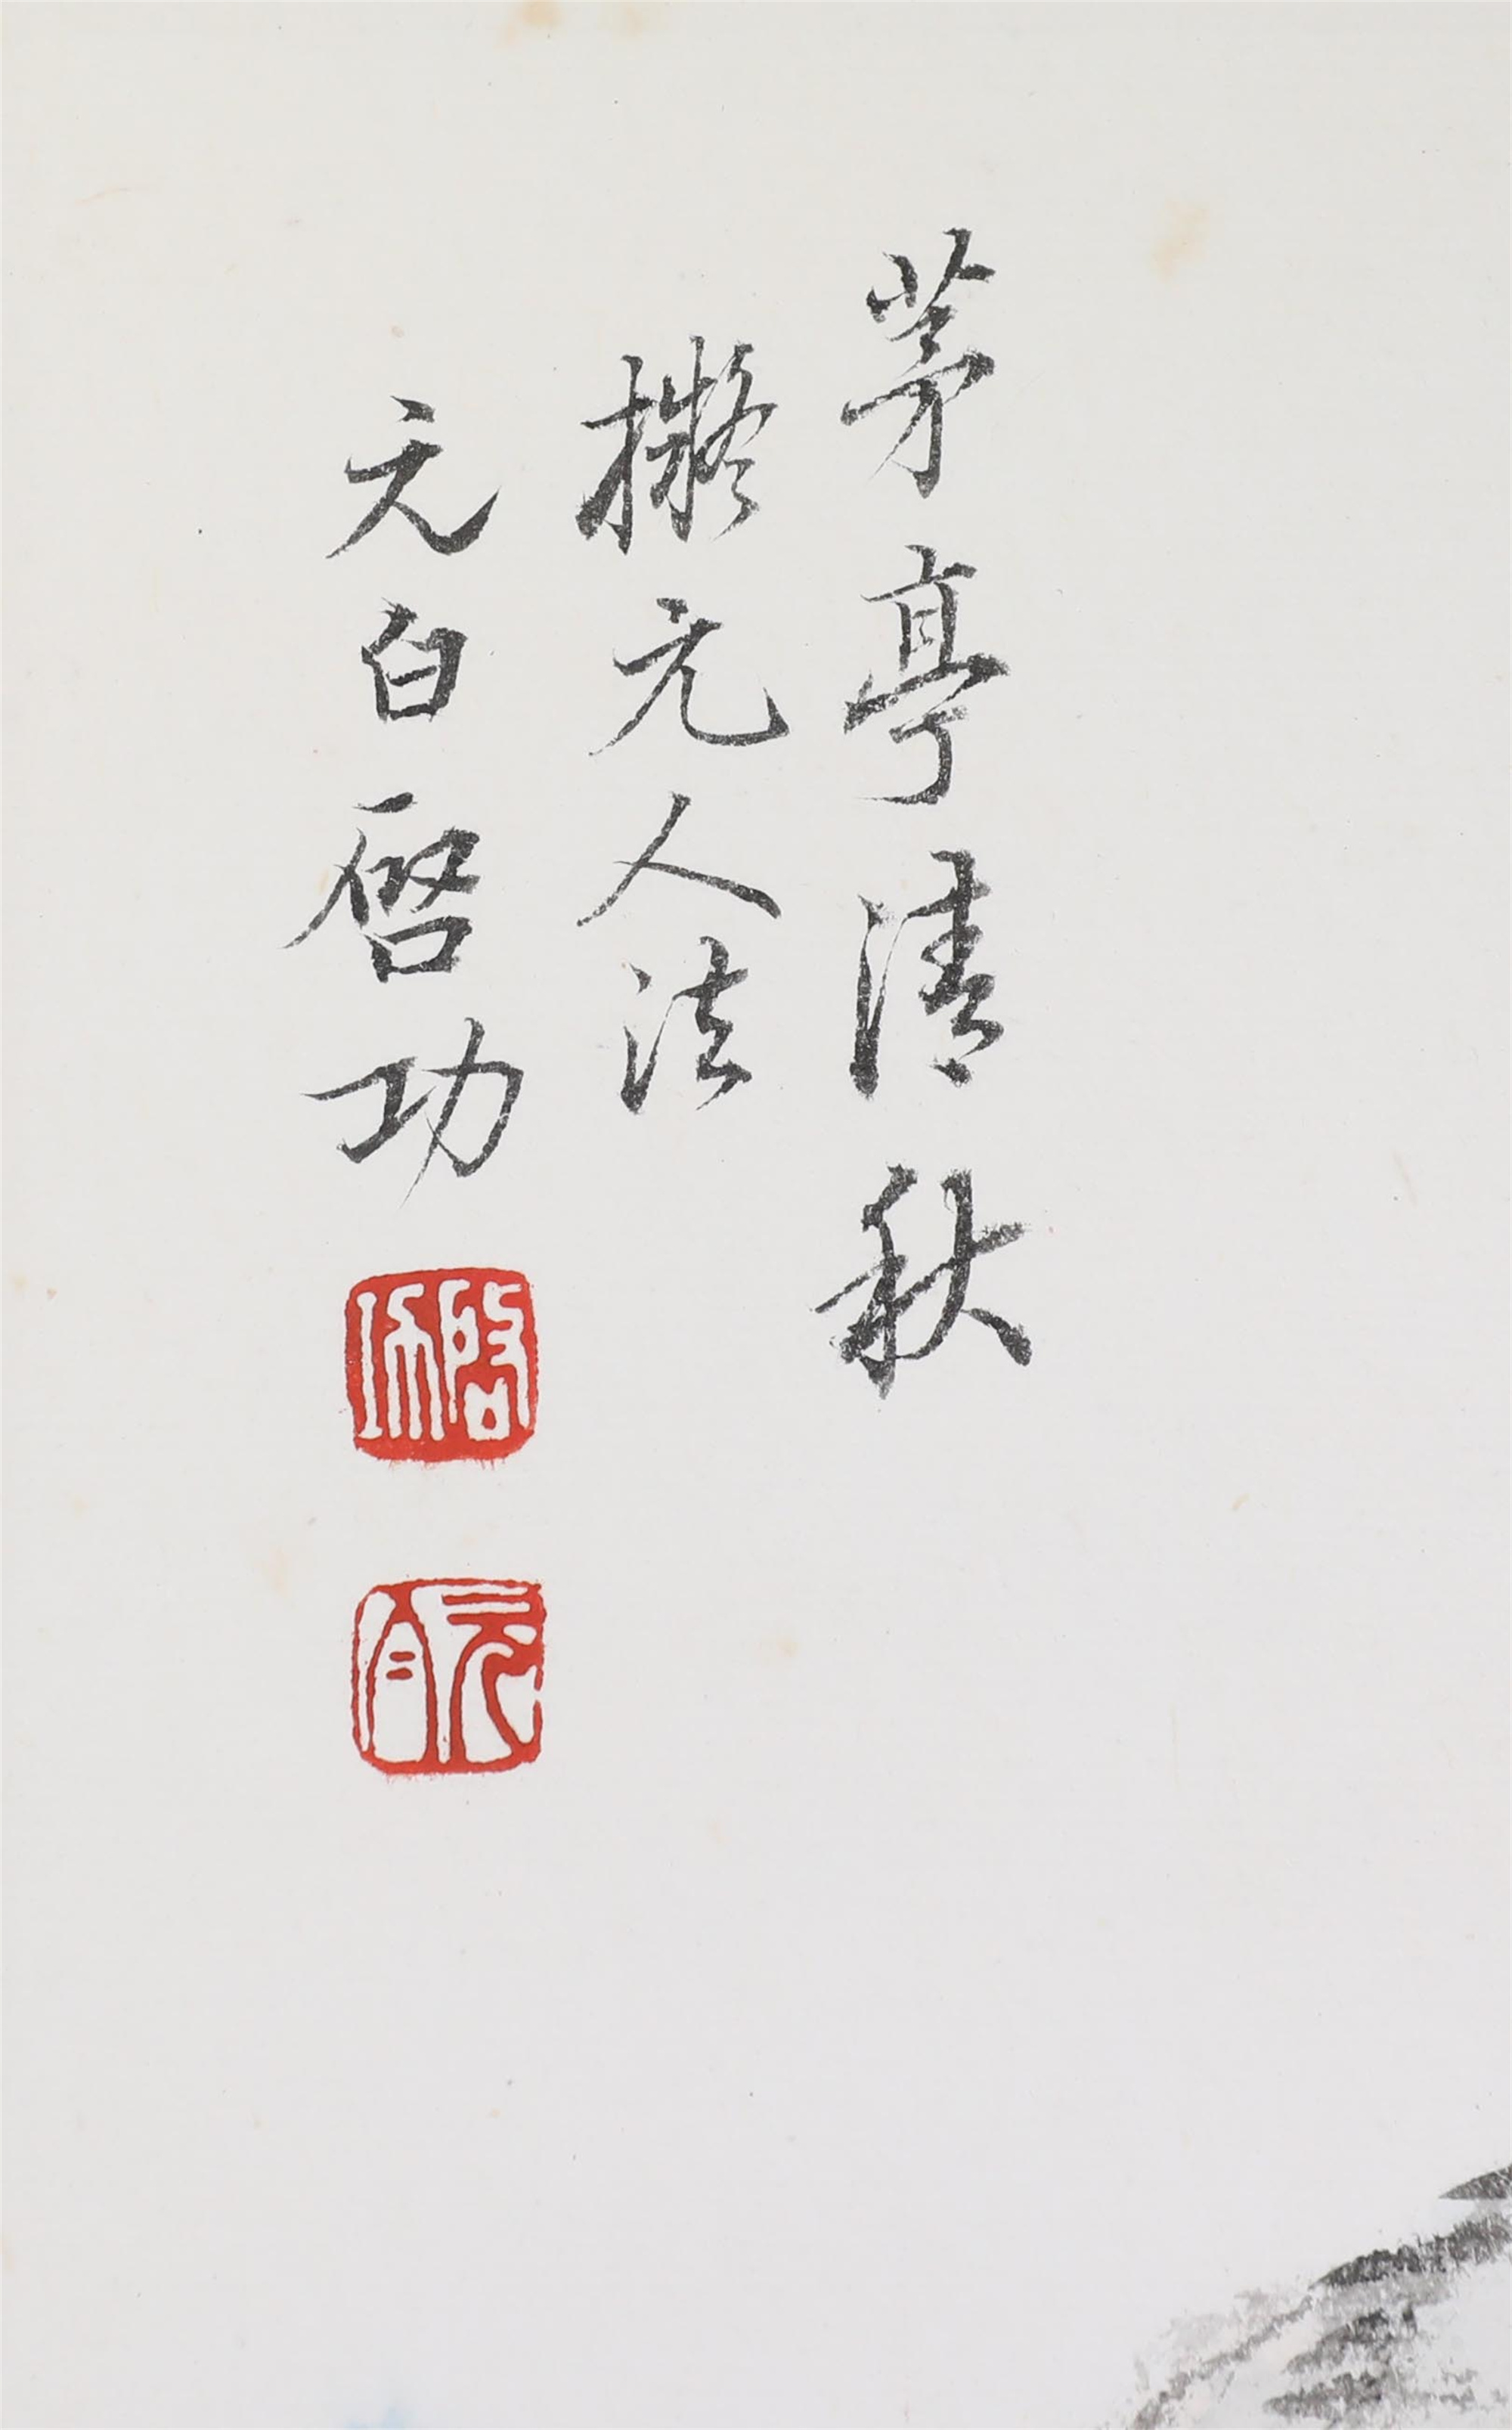 茅亭清秋
擬元人法
元白啓功
啓功
元白